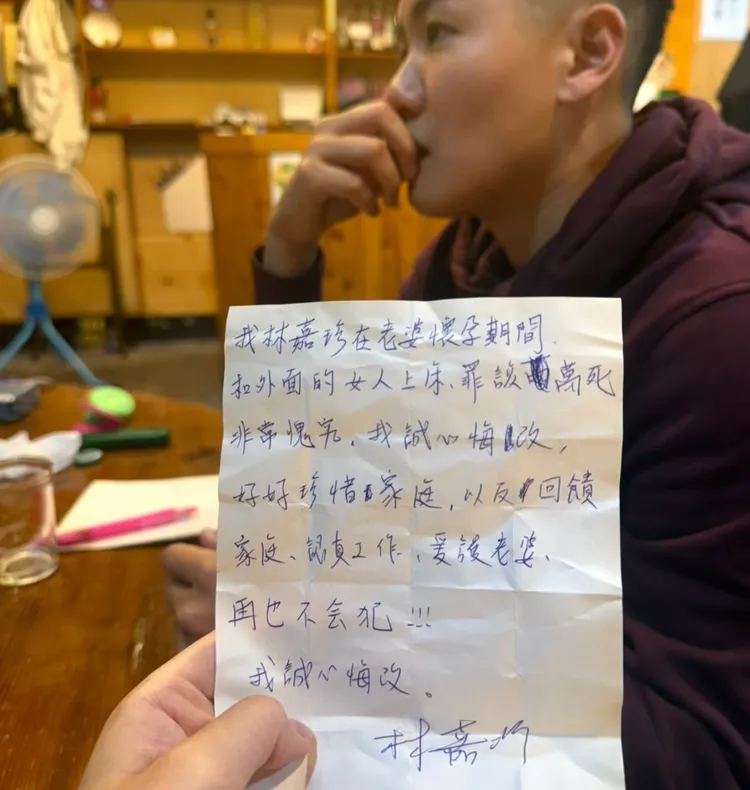 我林嘉珍在老婆懷孕期間
和外面的女人上床、罪該萬死
非常愧疚,我誠心悔改,
好好珍惜家庭,以及回饋
家庭、認真工作、愛護老婆、
再也不会犯!!!
我誠心悔改。
林嘉珍